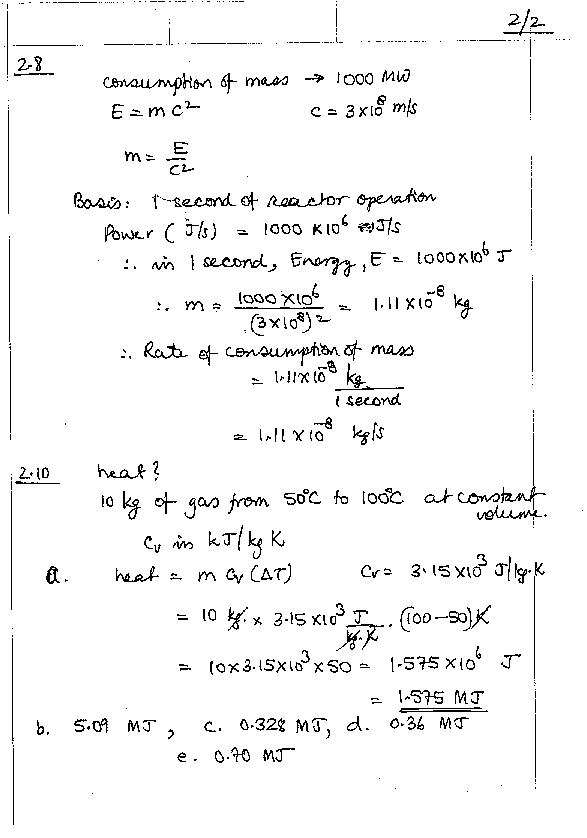 2/2
2.8
Consumption of mass → 1000 MW
E = mc² C = 3×10⁸ m/s
m = E/C²
Basis: 1-second of reactor operation
Power (J/s) = 1000 × 10⁶ J/s
∴ in 1 second, Energy, E = 1000×10⁶ J
∴ m = 1000×10⁶/(3×10⁸)² = 1.11×10⁻⁸ kg
∴ Rate of consumption of mass
= 1.11×10⁻⁸ kg/1 second
= 1.11 × 10⁻⁸ kg/s
2.10 heat?
10 kg of gas from 50°C to 100°C at constant
volume.
Cv in kJ/kg K
a. heat = m Cv (ΔT) Cv = 3.15×10³ J/kg.K
= 10 kg × 3.15×10³ J/kg.K . (100-50)K
= 10×3.15×10³×50 = 1.575×10⁶ J
= 1.575 MJ
b. 5.09 MJ, c. 0.328 MJ, d. 0.36 MJ
e. 0.70 MJ